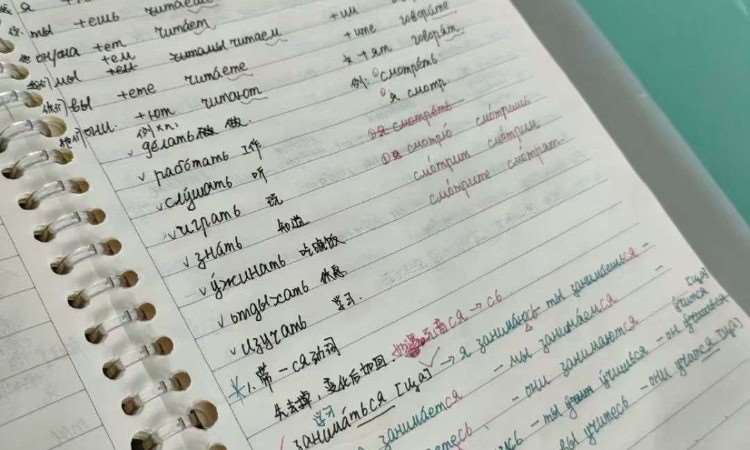 я
ты +ешь читаешь +ишь
он/она +ет читает +ит
мы +ем читаем +им
вы +ете читаете +ите говорите
они +ют читают +ят говорят
例: смотреть
я смотр
√ делать 做
√ работать 工作
√ слушать 听
√ играть 玩
√ знать 知道
√ ужинать 吃晚饭
√ отдыхать 休息
√ изучать 学习
смотреть
смотрю смотришь
смотрит смотрим
смотрите смотрят
1. 带-ся动词
先去掉, 变化后加回. 元音ся→сь
学习
заниматься [ца] → я занимаюсь ты занимаешься
занимается - мы занимаемся
они занимаются
учишься - он учится [ца]
вы учитесь - они учатся [ца]